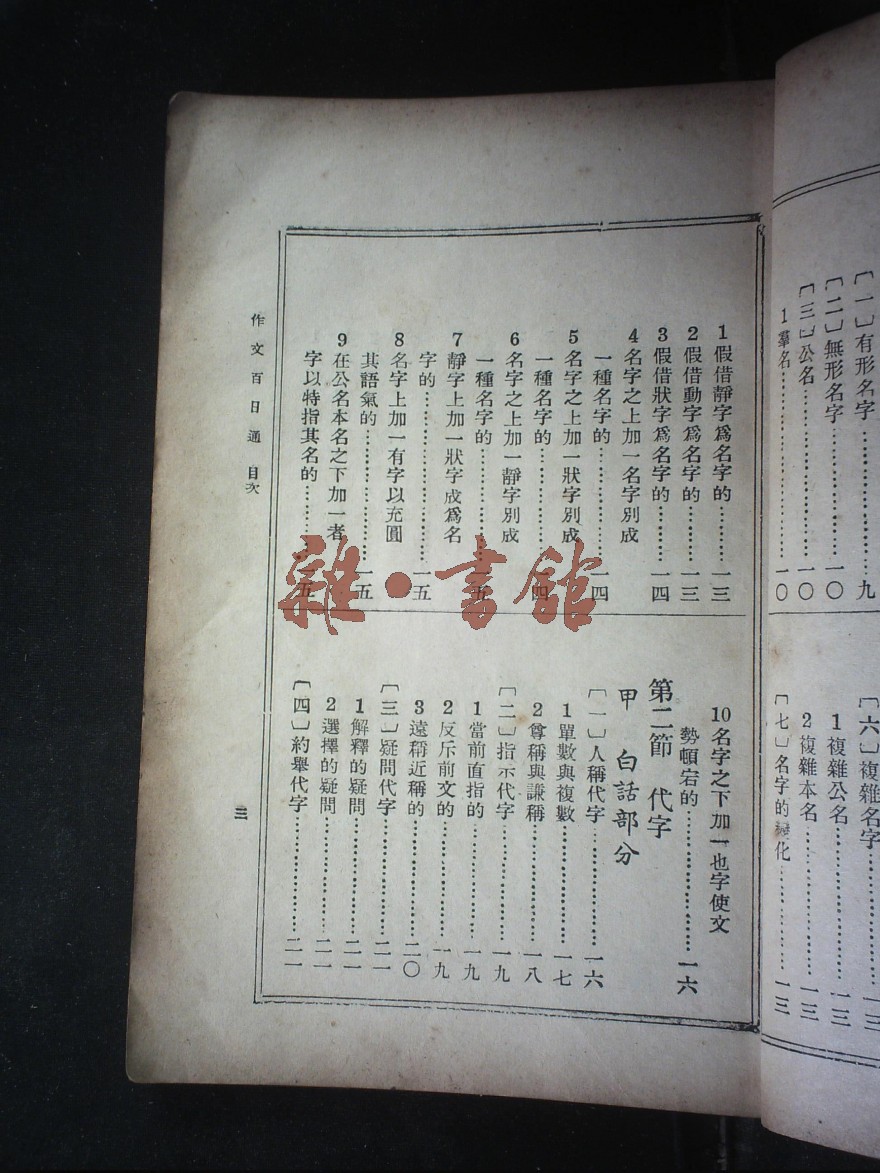 〔一〕有形名字……九
〔二〕無形名字……一〇
〔三〕公名……一〇
1羣名……一〇
〔六〕複雜名字……一三
1複雜公名……一三
2複雜本名……一三
〔七〕名字的變化……一三
1假借靜字爲名字的……一三
2假借動字爲名字的……一三
3假借狀字爲名字的……一四
4名字之上加一名字別成
一種名字的……一四
5名字之上加一狀字別成
一種名字的……一四
6名字之上加一靜字別成
一種名字的……一五
7靜字上加一狀字成爲名
字的……一五
8名字上加一有字以充圓
其語氣的……一五
9在公名本名之下加一者
字以特指其名的……一五
10名字之下加一也字使文
勢頓宕的……一六
第二節 代字
甲 白話部分
〔一〕人稱代字……一六
1單數與複數……一七
2尊稱與謙稱……一八
〔二〕指示代字……一九
1當前直指的……一九
2反斥前文的……一九
3遠稱近稱的……二〇
〔三〕疑問代字……二一
1解釋的疑問……二一
2選擇的疑問……二一
〔四〕約舉代字……二一
作文百日通 目次
三
雜·書館